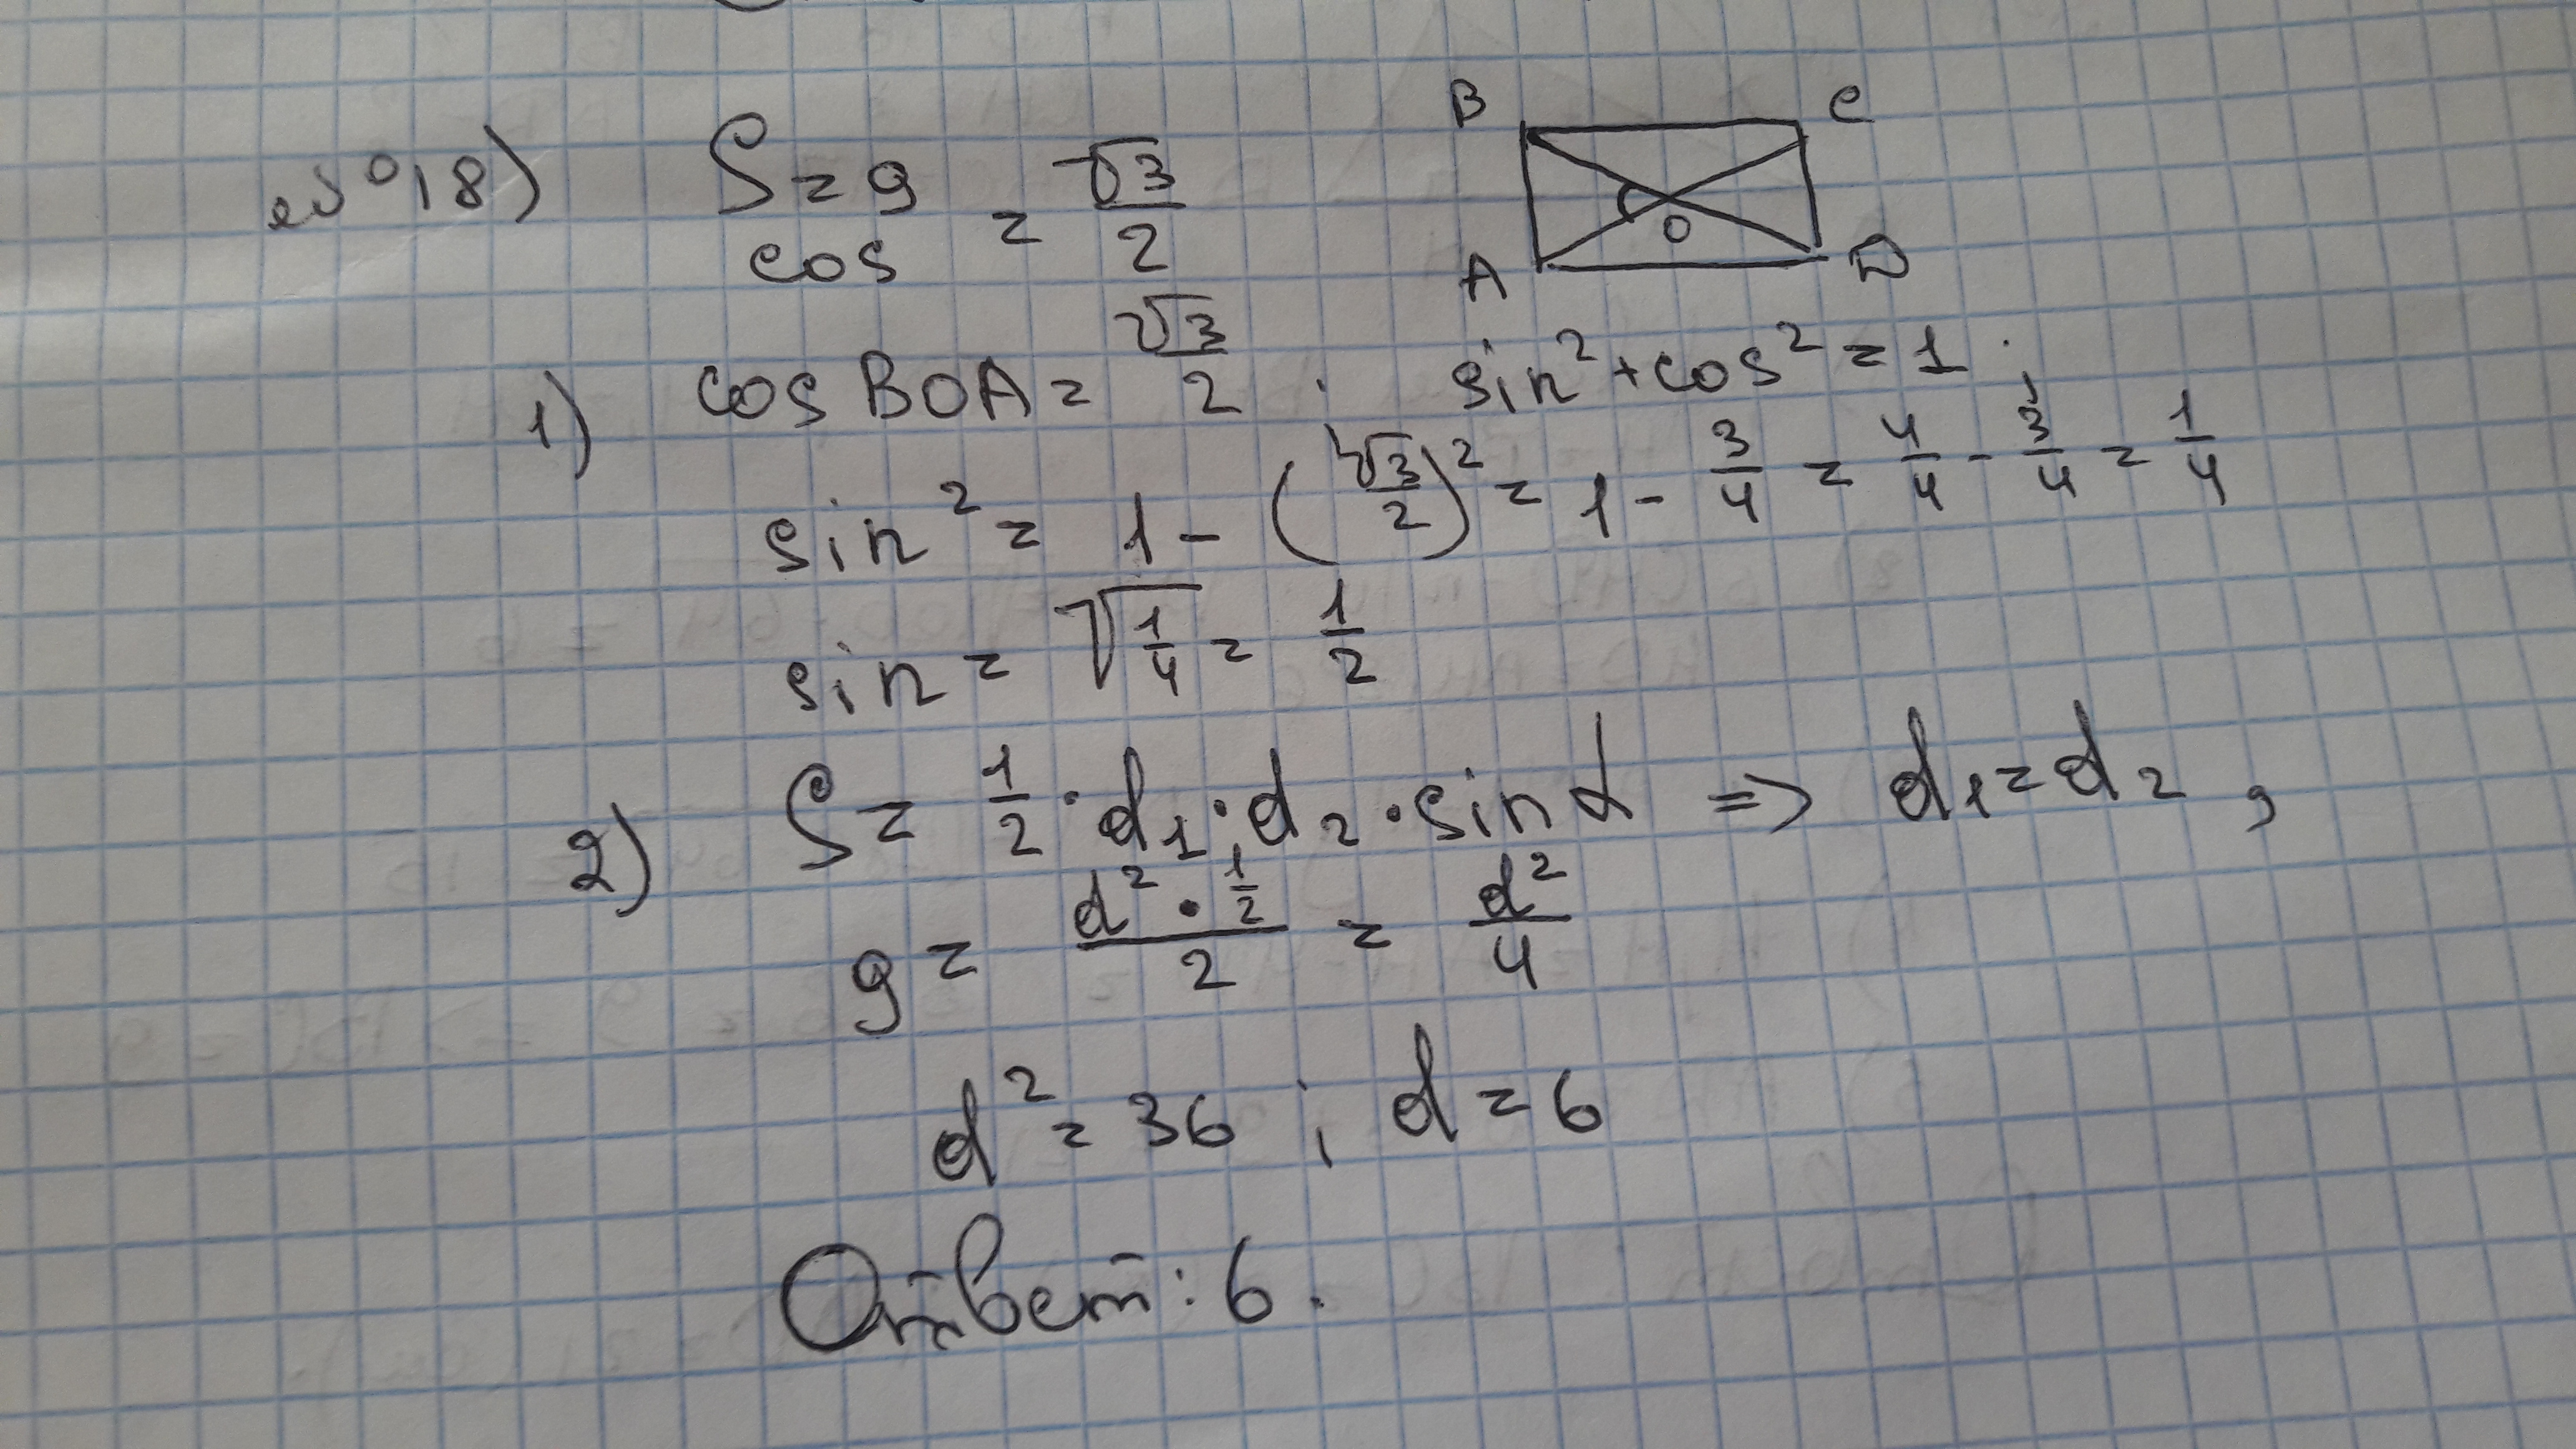 №18) S = 9
cos = √3/2
B C
O
A D
1) cos BOA = √3/2 ; sin² + cos² = 1 ;
sin² = 1 - (√3/2)² = 1 - 3/4 = 4/4 - 3/4 = 1/4
sin = √1/4 = 1/2
2) S = 1/2 · d₁ · d₂ · sin α => d₁ = d₂ ,
9 = d² · 1/2 / 2 = d²/4
d² = 36 ; d = 6
Ответ: 6.